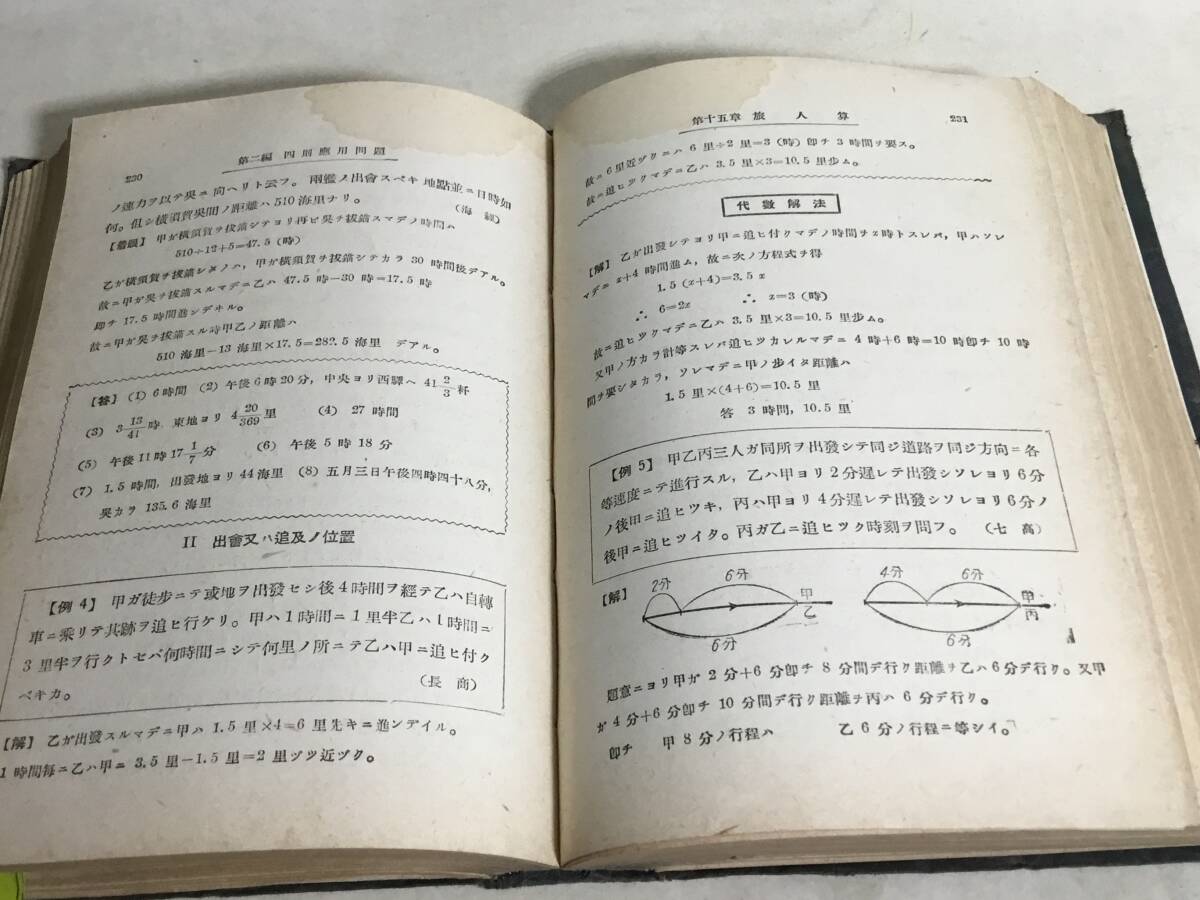 230
第二編 四則應用問題
ノ速力ヲ以テ吳ニ向ヘリト云フ。兩艦ノ出會スベキ地點並ニ日時如
何。但シ橫須賀吳間ノ距離ハ510海里ナリ。 (海經)
【着眼】 甲ガ橫須賀ヲ拔錨シテヨリ再ビ吳ヲ拔錨スマデノ時間ハ
510÷12+5=47.5(時)
乙ガ橫須賀ヲ拔錨シタノハ,甲ガ橫須賀ヲ拔錨シテカラ 30 時間後デアル。
故ニ甲ガ吳ヲ拔錨スルマデニ乙ハ 47.5 時−30 時=17.5 時
卽チ 17.5 時間進ンデキル。
故ニ甲ガ吳ヲ拔錨スル時甲乙ノ距離ハ
510 海里−13 海里×17.5=282.5 海里 デアル。
【答】 (1) 6時間 (2) 午後6時20分,中央ヨリ西驛ヘ 41 2/3 粁
(3) 3 13/41 時,東地ヨリ 4 20/369 里 (4) 27 時間
(5) 午後11時17 1/7 分 (6) 午後5時18分
(7) 1.5時間,出發地ヨリ44海里 (8) 五月三日午後四時四十八分,
吳カラ 135.6 海里
II 出會又ハ追及ノ位置
【例 4】 甲ガ徒步ニテ或地ヲ出發セシ後4時間ヲ經テ乙ハ自轉
車ニ乘リテ其跡ヲ追ヒ行ケリ。甲ハ1時間ニ1里半乙ハ1時間ニ
3里半ヲ行クトセバ何時間ニシテ何里ノ所ニテ乙ハ甲ニ追ヒ付ク
ベキカ。 (長商)
【解】 乙ガ出發スルマデニ甲ハ 1.5 里×4=6 里先キニ進ンデイル。
1時間每ニ乙ハ甲ニ 3.5 里−1.5 里=2 里ヅツ近ヅク。
第十五章 旅人算
231
故ニ6里近ヅクニハ 6 里÷2 里=3 (時) 卽チ 3 時間ヲ要ス。
故ニ追ヒツクマデニ乙ハ 3.5 里×3=10.5 里步ム。
代數解法
【解】 乙ガ出發シテヨリ甲ニ追ヒ付クマデノ時間ヲ x 時トスレバ,甲ハソレ
マデニ x+4 時間進ム,故ニ次ノ方程式ヲ得
1.5 (x+4)=3.5 x
∴ 6=2x ∴ x=3 (時)
故ニ追ヒツクマデニ乙ハ 3.5 里×3=10.5 里步ム。
又甲ノ方カラ計等スレバ追ヒツカレルマデニ 4時+6時=10時卽チ 10時
間ヲ要シタカラ,ソレマデニ甲ノ步イタ距離ハ
1.5 里×(4+6)=10.5 里
答 3 時間, 10.5 里
【例 5】 甲乙丙三人ガ同所ヲ出發シテ同ジ道路ヲ同ジ方向=各
等速度ニテ進行スル,乙ハ甲ヨリ2分遲レテ出發シソレヨリ6分
ノ後甲ニ追ヒツキ,丙ハ甲ヨリ4分遲レテ出發シソレヨリ6分ノ
後甲ニ追ヒツイタ。丙ガ乙ニ追ヒツク時刻ヲ問フ。 (七高)
【解】
2分 6分 甲 乙 6分
4分 6分 甲 丙 6分
題意ニヨリ甲ガ 2分+6分卽チ 8 分間デ行ク距離ヲ乙ハ6分デ行ク。又甲
ガ4分+6分卽チ 10 分間デ行ク距離ヲ丙ハ 6分デ行ク。
卽チ 甲8分ノ行程ハ 乙6分ノ行程ニ等シイ。